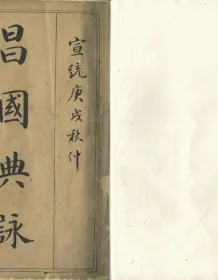 宣統庚戌秋仲
昌國典詠